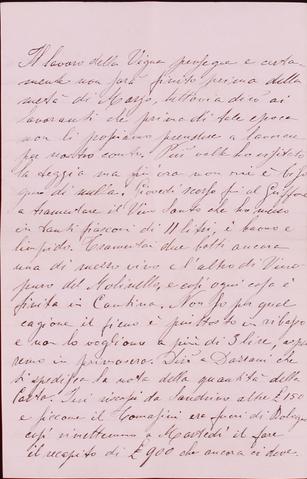 Il lavoro della Vigna prosegue e certa
mente non sarà finito prima della
metà di Marzo, tuttavia dirò ai
lavoranti che prima di tale epoca
non li possiamo prendere a lavorare
per nostro conto. Più volte ho
la seggia ma per ora non vi è biso
gno di nulla. Giovedì scorso fui al
a tramutare il Vino Santo che ho messo
in tanti fiasconi di 11 litri, è buono e
limpido. Tramutai due botti ancora
una di mezzo vino e l'altra di Vino
puro del Molinello, e così ogni cosa è
finita in Cantina. Non so per qual
cagione il fieno è piuttosto in ribasso
e non lo vogliono a più di 3 lire,
remo in primavera. Dirò a che
ti spedisce la nota della quantità della
Ieri riscossi da Sandrino altre £ 150
e siccome il era fuori di Bologna
così rimettemmo a Martedì il fare
il recapito di £ 900 che ancora ci deve.